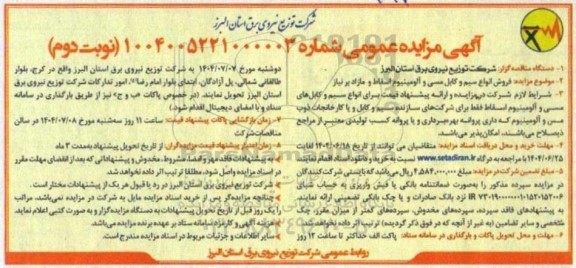 شرکت توزیع نیروی برق استان البرز
آگهی مزایده عمومی شماره ۱۰۰۴۰۰۵۲۲۱۰۰۰۰۰۳ (نوبت دوم)
۱- دستگاه مناقصه گزار: شرکت توزیع نیروی برق استان البرز
۲- موضوع مزایده: فروش انواع سیم و کابل مسی و آلومینیوم اسقاط و مازاد بر نیاز
۳- شرایط لازم شرکت در مزایده و ارائه پیشنهاد قیمت برای انواع سیم و کابل‌های
مسی و آلومینیوم اسقاط فقط برای شرکت‌های سازنده سیم و کابل و یا کارخانجات ذوب
مس و آلومینیوم که دارای پروانه بهره‌برداری و یا پروانه کسب تولیدی معتبر از مراجع
ذیصلاح می‌باشند، امکان پذیر می‌باشد.
۴- مهلت خرید و محل دریافت اسناد مزایده: متقاضیان می توانند از تاریخ ۱۴۰۴/۰۶/۱۸ لغایت
۱۴۰۴/۰۶/۲۵ با مراجعه در درگاه www.setadiran.ir نسبت به خرید و دانلود اسناد اقدام نمایند
۵- مبلغ تضمین شرکت در مزایده: ۴,۵۸۴,۰۰۰,۰۰۰ ریال می‌باشد که بایستی شرکت‌کنندگان
در مزایده سپرده مذکور را به‌صورت ضمانتنامه بانکی یا فیش واریزی به حساب شبای
نزد بانک صادرات و یا چک بانکی تضمینی ارائه نمایند.
به پیشنهادهای فاقد سپرده، سپرده‌های مخدوش، سپرده‌های کمتر از میزان مقرر، چک
شخصی و سایر تضامین (به غیر از آنچه که در فوق ذکر گردید) ترتیب اثر داده نخواهد شد.
۶- مهلت و محل تحویل پاکات و بارگذاری در سامانه ستاد: پاکت الف حداکثر تا ساعت ۱۲ روز
دوشنبه مورخ ۱۴۰۴/۰۷/۰۷ به شرکت توزیع نیروی برق استان البرز واقع در کرج، بلوار
طالقانی شمالی، پل آزادگان، ابتدای بلوار امام رضا، امور تدارکات شرکت توزیع برق
استان البرز تحویل نمایند. (در خصوص پاکات «ب و ج» نیز از طریق بارگذاری در سامانه
ستاد و با امضای دیجیتال اقدام شود)
۷- زمان بازگشایی پاکات پیشنهاد قیمت: ساعت ۱۱ روز سه‌شنبه مورخ ۱۴۰۴/۰۷/۰۸ در سالن
مناقصات شرکت
۸- زمان اعتبار پیشنهاد قیمت مزایده‌گران از تاریخ تحویل پیشنهاد به مدت ۳ ماه
به پیشنهادات فاقد مهر و امضاء، مشروط، مخدوش و پیشنهاداتی که بعد از انقضای مهلت مقرر
در اسناد مزایده واصل شود، مطلقا ترتیب اثر داده نخواهد شد.
شرکت توزیع نیروی برق استان البرز در رد یا قبول هر یک از پیشنهادات مختار است.
چنانچه مزایده‌گر پس از خرید اسناد مزایده مایل به شرکت در مزایده نمی‌باشد، مراتب
را یک روز قبل از تاریخ تحویل پیشنهادات به دستگاه مزایده‌گزار و به صورت کتبی اعلام نماید.
هزینه آگهی و کارمزد سامانه ستاد بر عهده برنده مزایده می‌باشد.
سایر اطلاعات و جزئیات مربوط در اسناد مزایده مندرج است.
روابط عمومی شرکت توزیع نیروی برق استان البرز